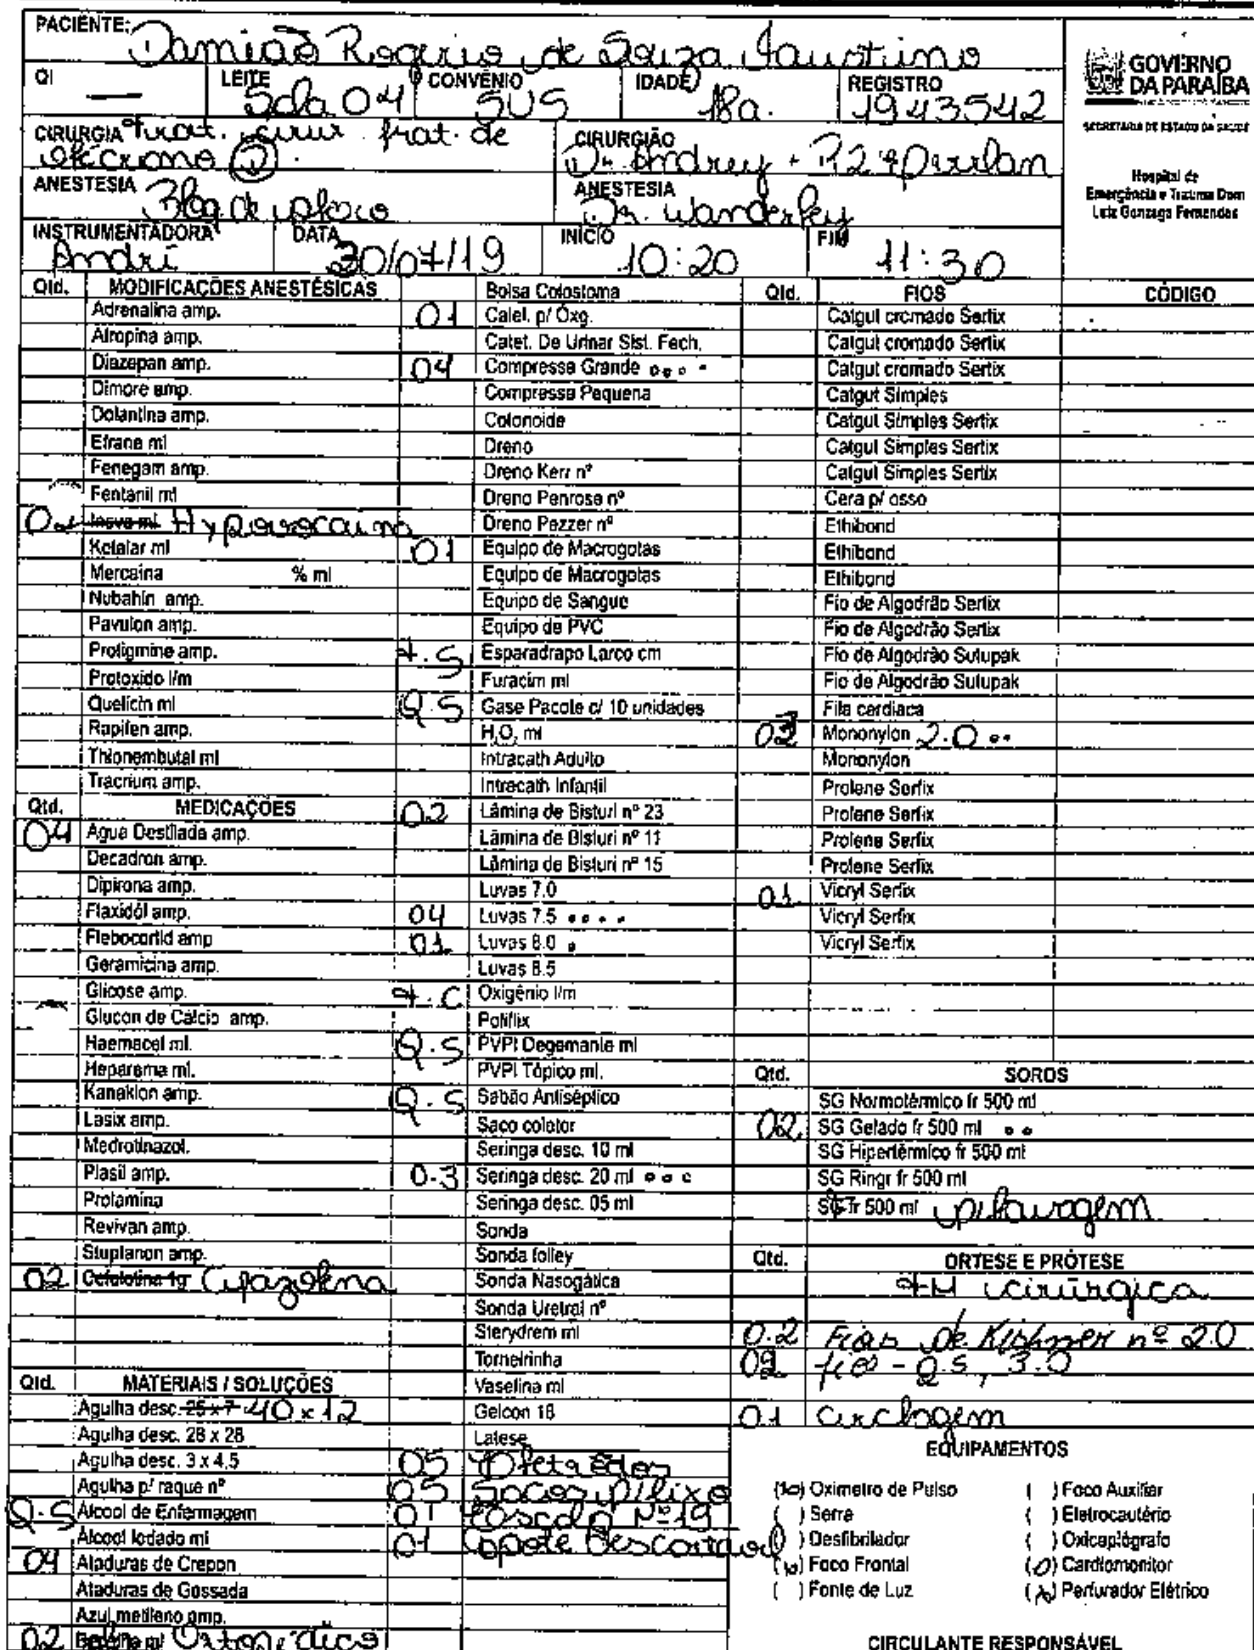 PACIENTE: Damião Rogerio de Souza Faustino
QI — LEITE Sala 04 CONVÊNIO SUS IDADE 18a. REGISTRO 1943542
GOVERNO DA PARAÍBA
SECRETARIA DE ESTADO DA SAÚDE
Hospital de Emergência e Trauma Dom Luiz Gonzaga Fernandes
CIRURGIA Trat. cirur frat. de
CIRURGIÃO Dr. Andrey + R2
ANESTESIA Bloq. de plexo ANESTESIA Dr. Wanderley
INSTRUMENTADORA André DATA 30/07/19 INÍCIO 10:20 FIM 11:30
Qtd. MODIFICAÇÕES ANESTÉSICAS
Adrenalina amp.
Atropina amp.
Diazepan amp.
Dimore amp.
Dolantina amp.
Efrane ml
Fenegam amp.
Fentanil ml
Inova ml
Ketalar ml
Mercaína % ml
Nubahin amp.
Pavulon amp.
Protigmine amp.
Protoxido l/m
Quelicin ml
Rapifen amp.
Thionembutal ml
Tracrium amp.
Qtd. MEDICAÇÕES
04 Agua Destilada amp.
Decadron amp.
Dipirona amp.
Flaxidól amp.
Flebocortid amp
Geramicina amp.
Glicose amp.
Glucon de Cálcio amp.
Haemacel ml.
Heparema ml.
Kanakion amp.
Lasix amp.
Medrotinazol.
Plasil amp.
Prolamina
Revivan amp.
Stuplanon amp.
02 Cefalotina 1g
Qtd. MATERIAIS / SOLUÇÕES
Agulha desc. 25 x 7 40 x 12
Agulha desc. 28 x 28
Agulha desc. 3 x 4,5
Agulha p/ raque nº
Q.S Alcool de Enfermagem
Alcool Iodado ml
04 Ataduras de Crepon
Ataduras de Gossada
Azul metileno amp.
02 Ortopedico
Bolsa Colostoma
01 Catel. p/ Oxg.
Catet. De Urinar Sist. Fech.
04 Compressa Grande
Compressa Pequena
Colonoide
Dreno
Dreno Kerr nº
Dreno Penrose nº
Dreno Pezzer nº
01 Equipo de Macrogotas
Equipo de Macrogotas
Equipo de Sangue
Equipo de PVC
Esparadrapo Larco cm
Furacim ml
Q.S Gase Pacote c/ 10 unidades
H₂O₂ ml
Intracath Adulto
Intracath Infantil
02 Lâmina de Bisturi nº 23
Lâmina de Bisturi nº 11
Lâmina de Bisturi nº 15
Luvas 7.0
04 Luvas 7.5
01 Luvas 8.0
Luvas 8.5
Oxigênio l/m
Poliflix
Q.S PVPI Degemante ml
PVPI Tópico ml.
Q.S Sabão Antiséptico
Saco coletor
Seringa desc. 10 ml
03 Seringa desc. 20 ml
Seringa desc. 05 ml
Sonda
Sonda folley
Sonda Nasogática
Sonda Uretral nº
Sterydrem ml
Torneirinha
Vaselina ml
Gelcon 18
Latese
05 Eletrodos
05 Sacos p/lixo
01 Escalp Nº 19
01 Capote Descartavel
Qtd. FIOS CÓDIGO
Catgut cromado Sertix
Catgut cromado Sertix
Catgut cromado Sertix
Catgut Simples
Catgut Simples Sertix
Catgut Simples Sertix
Catgut Simples Sertix
Cera p/ osso
Ethibond
Ethibond
Ethibond
Fio de Algodrão Sertix
Fio de Algodrão Sertix
Fio de Algodrão Sutupak
Fio de Algodrão Sutupak
Fita cardiaca
Mononylon 2.0
Mononylon
Prolene Serfix
Prolene Serfix
Prolene Serfix
Prolene Serfix
01 Vicryl Serfix
Vicryl Serfix
Vicryl Serfix
Qtd. SOROS
SG Normotérmico fr 500 ml
02 SG Gelado fr 500 ml
SG Hipertérmico fr 500 ml
SG Ringr fr 500 ml
fr 500 ml
Qtd. ÓRTESE E PRÓTESE
cirúrgica
0.2 Fios de Kishner nº 2.0
02 fios - 3.0
01 circlagem
EQUIPAMENTOS
Oximetro de Pulso ( ) Foco Auxiliar
( ) Serra ( ) Eletrocautério
Desfibrilador ( ) Oxicapiógrafo
Foco Frontal Cardiomonitor
( ) Fonte de Luz Perfurador Elétrico
CIRCULANTE RESPONSÁVEL